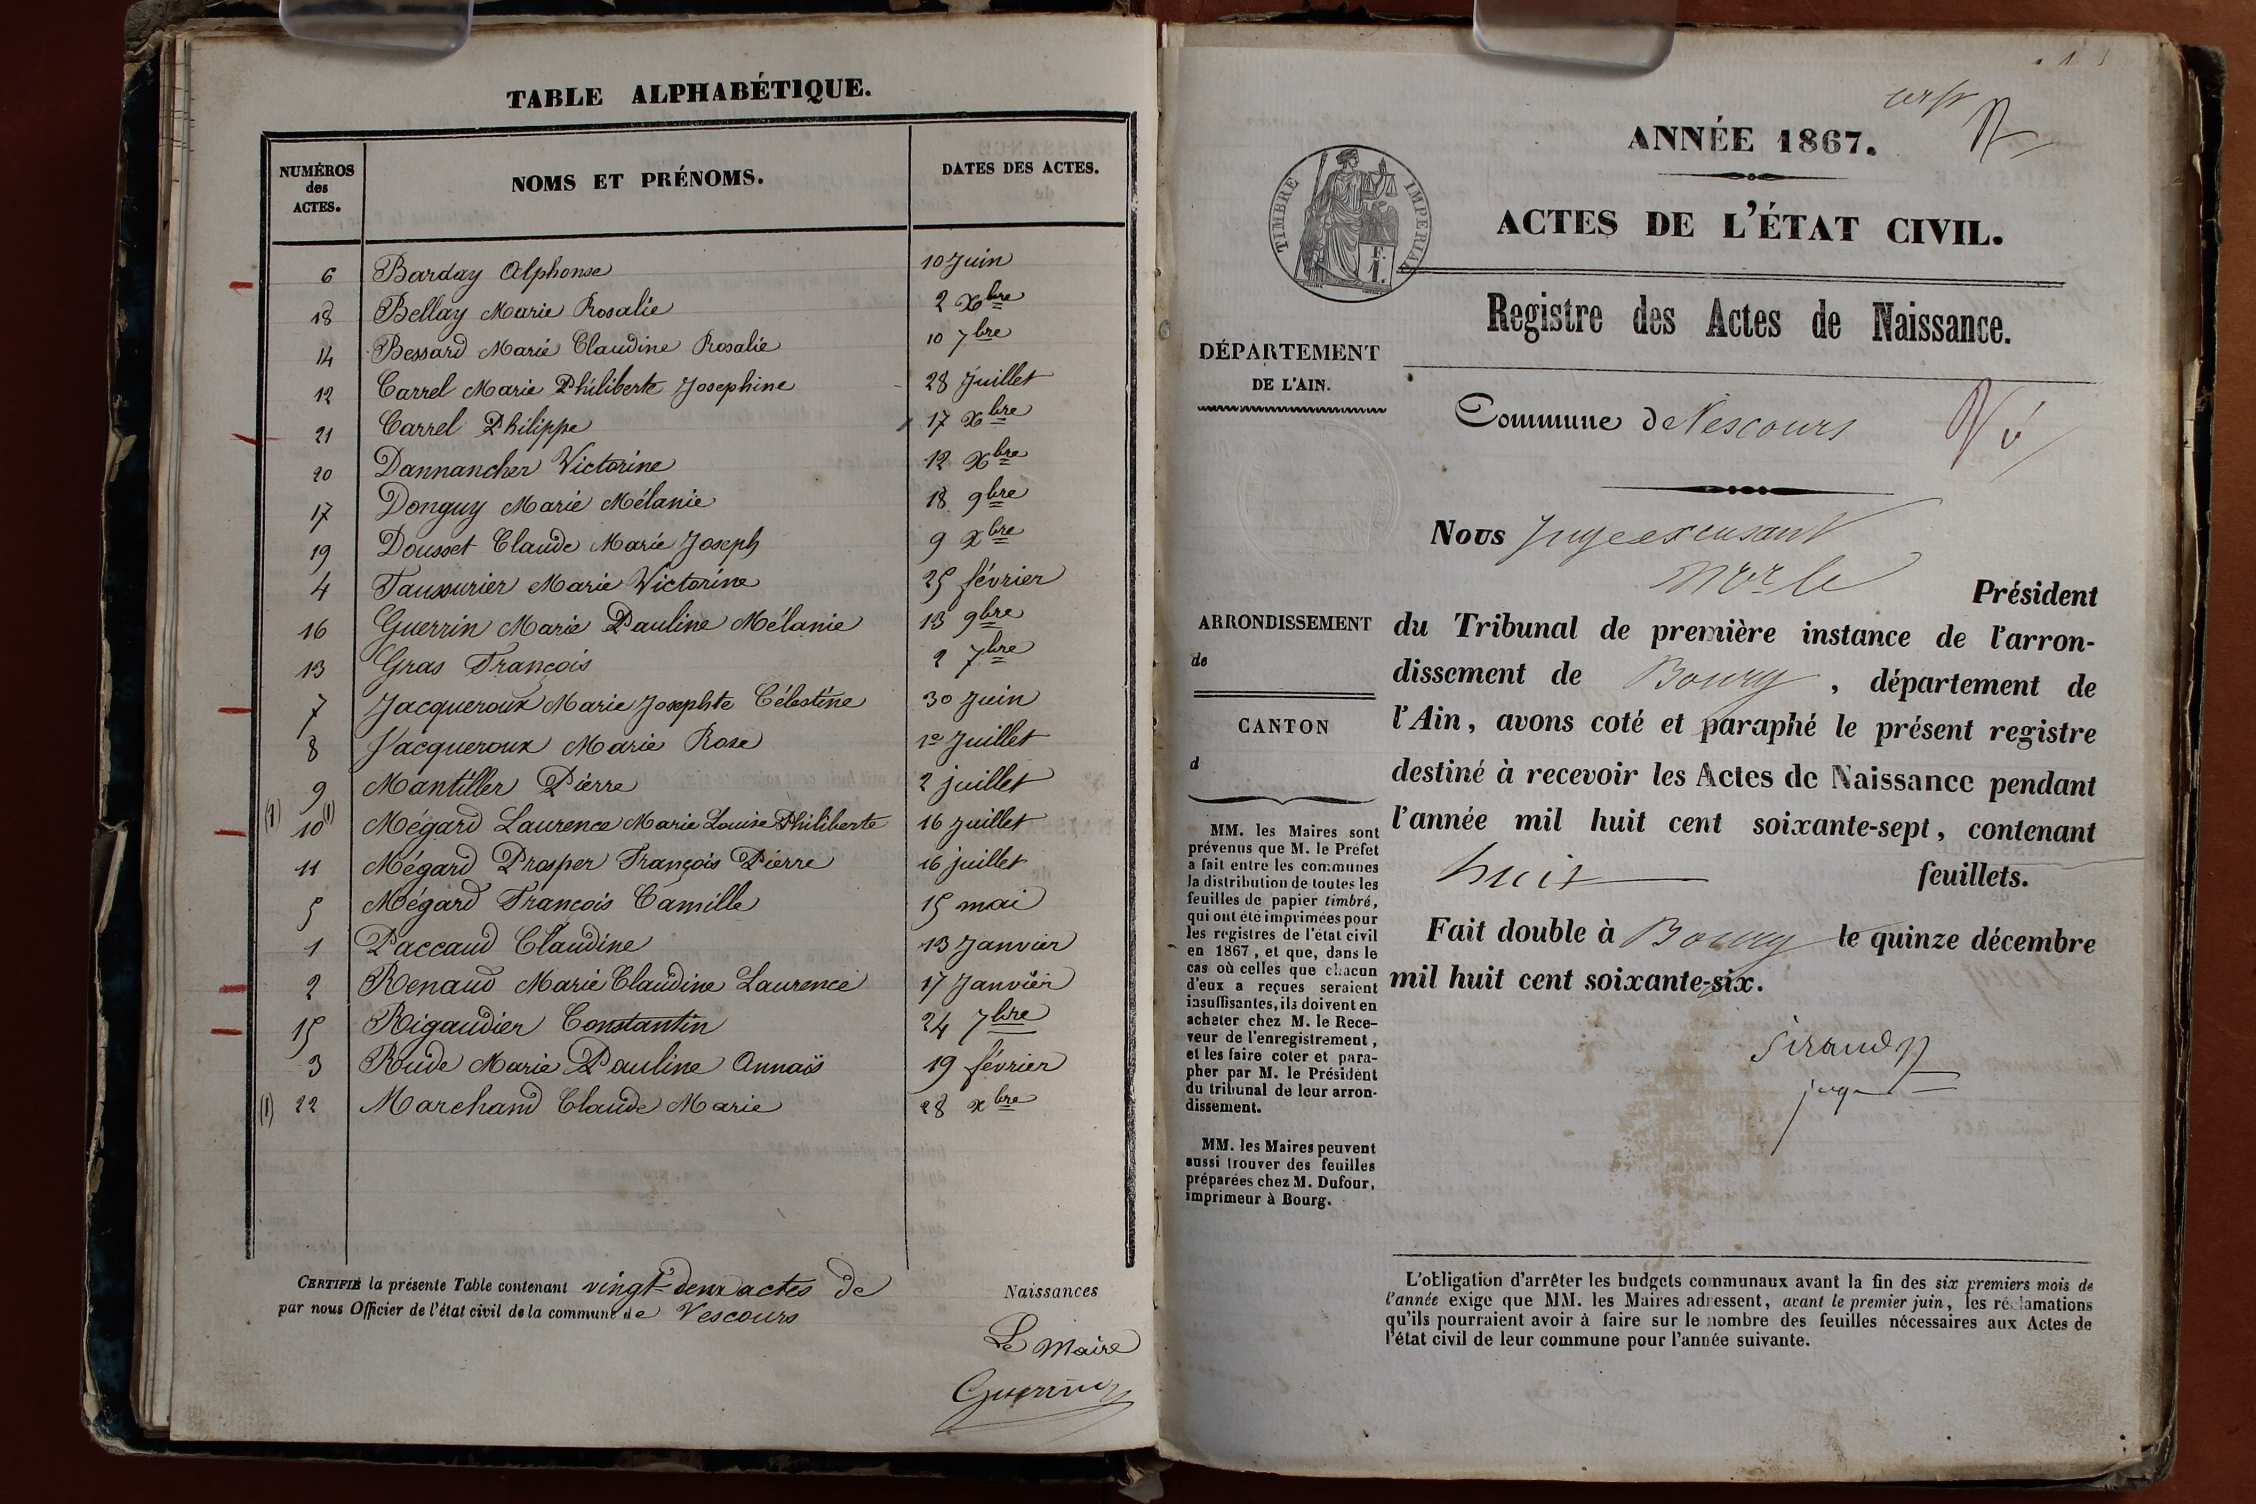 TABLE ALPHABÉTIQUE.
NUMÉROS des ACTES. NOMS ET PRÉNOMS. DATES DES ACTES.
6 Barday Alphonse 10 Juin
18 Bellay Marie Rosalie 2 Xbre
14 Bessard Marie Claudine Rosalie 10 7bre
12 Carrel Marie Philiberte Josephine 28 Juillet
21 Carrel Philippe 17 Xbre
20 Dannancher Victorine 12 Xbre
17 Donguy Marie Mélanie 18 9bre
19 Dousset Claude Marie Joseph 9 Xbre
4 Faussurier Marie Victorine 25 février
16 Guerrin Marie Pauline Mélanie 13 9bre
13 Gras François 2 7bre
7 Jacqueroux Marie Josephte Célestine 30 Juin
8 Jacqueroux Marie Rose 1er Juillet
9 Mantiller Pierre 2 juillet
(1) 10 (1) Mégard Laurence Marie Louise Philiberte 16 juillet
11 Mégard Prosper François Pierre 16 juillet
5 Mégard François Camille 15 mai
1 Paccaud Claudine 13 Janvier
2 Renaud Marie Claudine Laurence 17 Janvier
15 Rigaudier Constantin 24 7bre
3 Rude Marie Pauline Annaïs 19 février
(1) 22 Marchand Claude Marie 28 xbre
CERTIFIÉ la présente Table contenant vingt-deux actes de Naissances
par nous Officier de l'état civil de la commune de Vescours
Le Maire
Guerrin
ANNÉE 1867.
TIMBRE IMPÉRIAL
ACTES DE L'ÉTAT CIVIL.
Registre des Actes de Naissance.
DÉPARTEMENT
DE L'AIN.
Commune de Vescours
Vu
ARRONDISSEMENT
de
CANTON
d
MM. les Maires sont
prévenus que M. le Préfet
a fait entre les communes
la distribution de toutes les
feuilles de papier timbré,
qui ont été imprimées pour
les registres de l'état civil
en 1867, et que, dans le
cas où celles que chacun
d'eux a reçues seraient
insuffisantes, ils doivent en
acheter chez M. le Rece-
veur de l'enregistrement,
et les faire coter et para-
pher par M. le Président
du tribunal de leur arron-
dissement.
MM. les Maires peuvent
aussi trouver des feuilles
préparées chez M. Dufour,
imprimeur à Bourg.
Nous Juge excusant
Mr le Président
du Tribunal de première instance de l'arron-
dissement de Bourg, département de
l'Ain, avons coté et paraphé le présent registre
destiné à recevoir les Actes de Naissance pendant
l'année mil huit cent soixante-sept, contenant
huit feuillets.
Fait double à Bourg le quinze décembre
mil huit cent soixante-six.
juge
L'obligation d'arrêter les budgets communaux avant la fin des six premiers mois de
l'année exige que MM. les Maires adressent, avant le premier juin, les réclamations
qu'ils pourraient avoir à faire sur le nombre des feuilles nécessaires aux Actes de
l'état civil de leur commune pour l'année suivante.